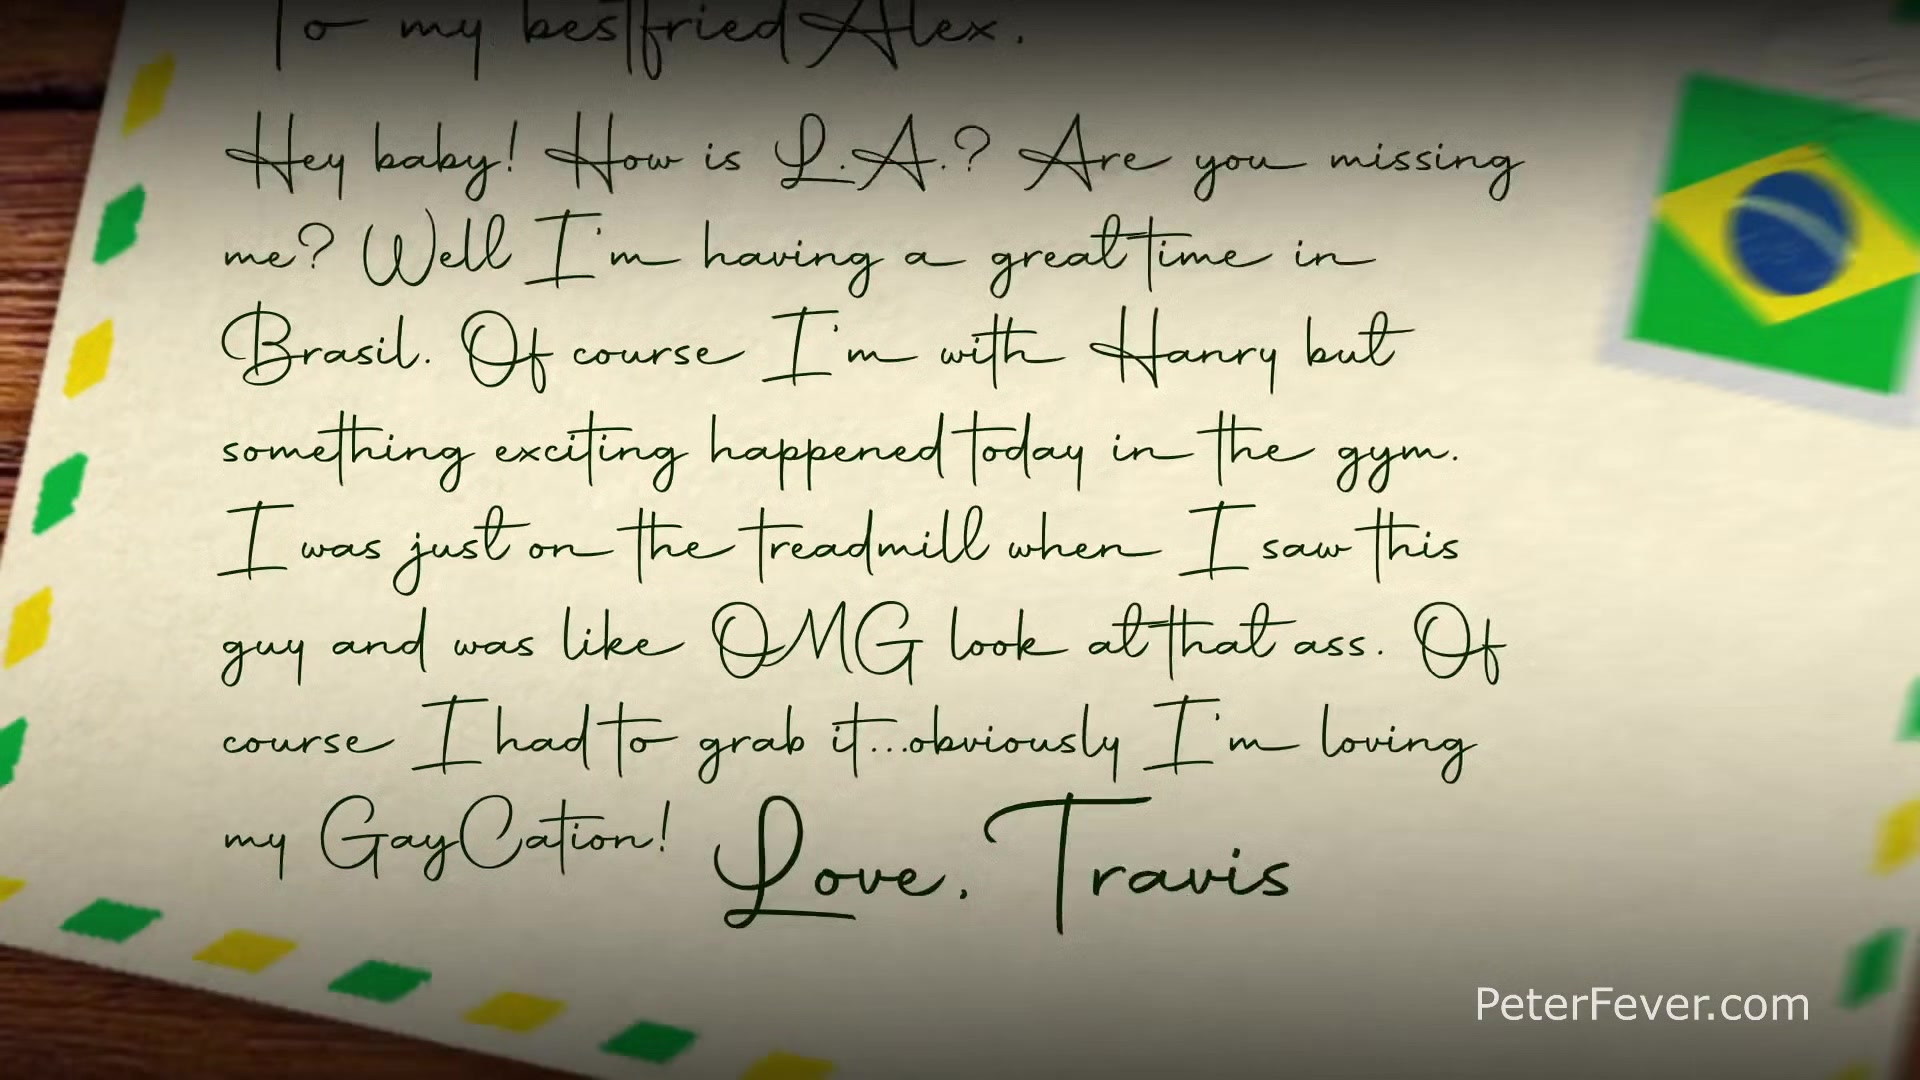 To my bestfried Alex.
Hey baby! How is L.A.? Are you missing
me? Well I'm having a great time in
Brasil. Of course I'm with Hanry but
something exciting happened today in the gym.
I was just on the treadmill when I saw this
guy and was like OMG look at that ass. Of
course I had to grab it...obviously I'm loving
my GayCation!
Love, Travis
PeterFever.com